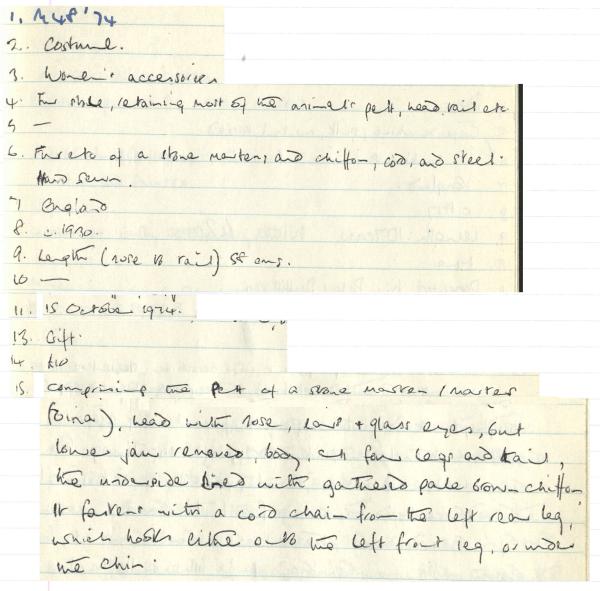 1. M48'74
2. Costume.
3. Women's accessories
4. Fur stole, retaining most of the animal's pelt, head, tail etc.
5 —
6. Fur etc of a stone marten, and chiffon, cord, and steel.
Hand sewn.
7 England
8. c.1930
9. Length (nose to tail) 58 cms.
10 —
11. 15 October 1974.
13. Gift.
14. £10
15. Comprising the pelt of a stone marten (martes
foina), head with nose, ears + glass eyes, but
lower jaw removed, body, all four legs and tail,
the underside lined with gathered pale brown chiffon
It fastens with a cord chain from the left rear leg,
which hooks either onto the left front leg, or under
the chin.